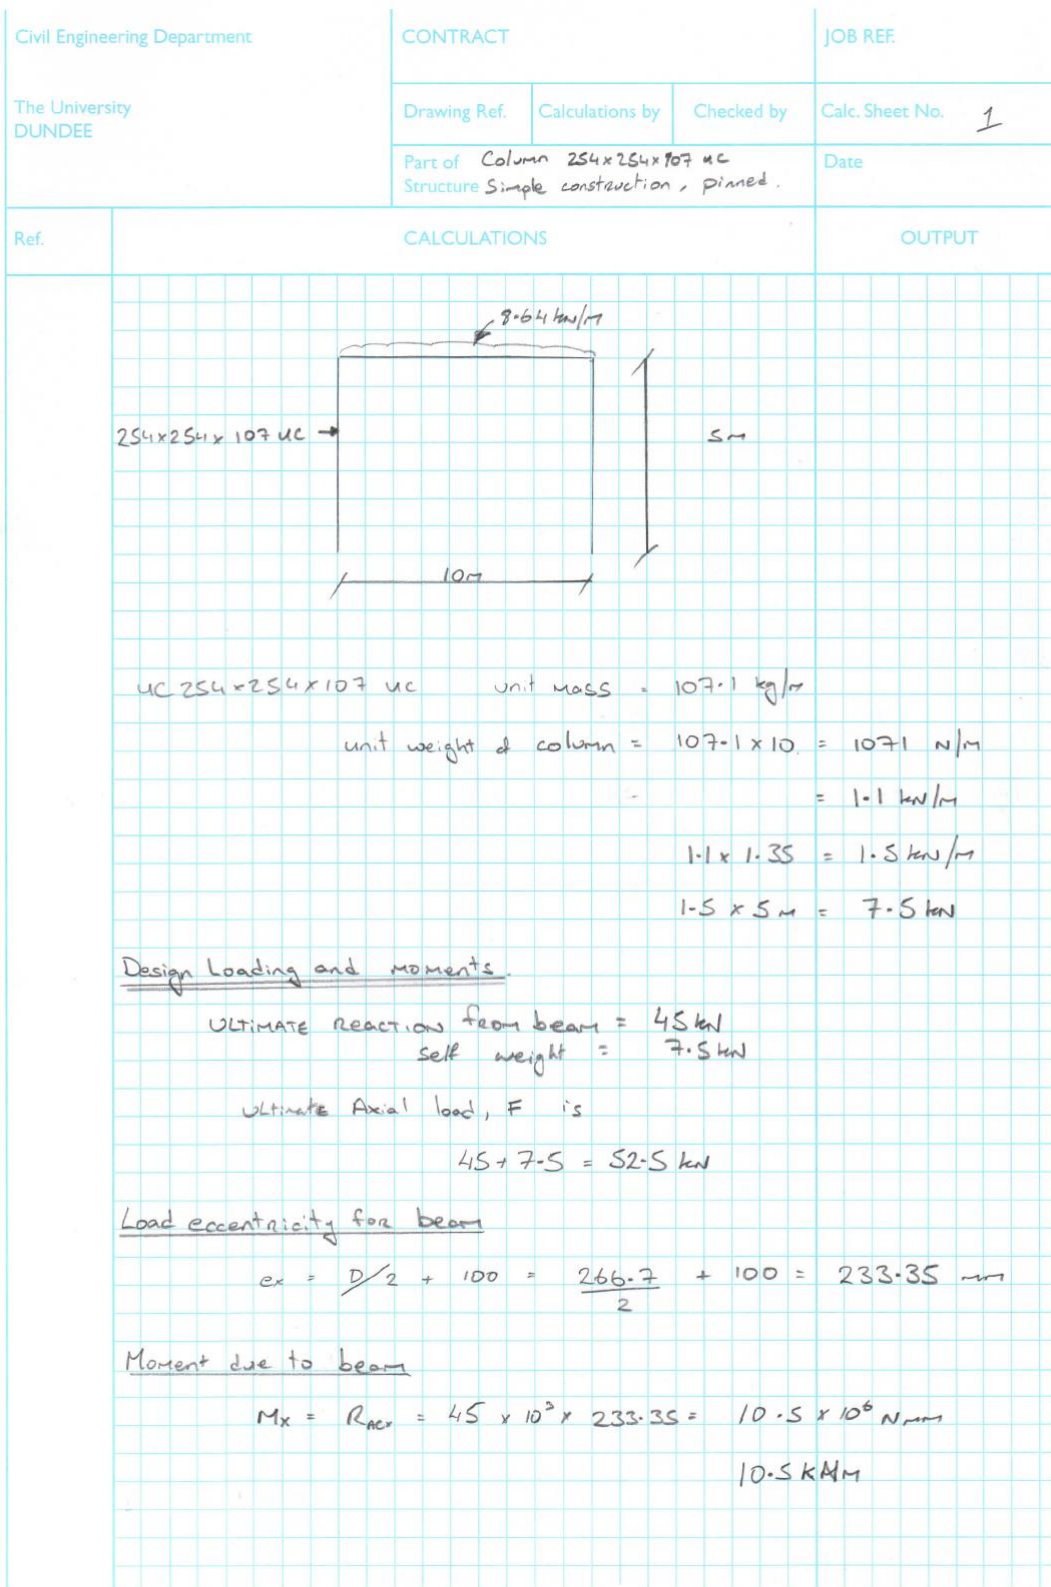 Civil Engineering Department
CONTRACT
JOB REF.
The University
DUNDEE
Drawing Ref.
Calculations by
Checked by
Calc. Sheet No. 1
Part of Column 254x254x107 UC
Structure Simple construction, pinned.
Date
Ref.
CALCULATIONS
OUTPUT
8.64 kN/m
254x254x107 UC
5m
10m
UC 254x254x107 UC unit mass = 107.1 kg/m
unit weight of column = 107.1 x 10 = 1071 N/m
= 1.1 kN/m
1.1 x 1.35 = 1.5 kN/m
1.5 x 5m = 7.5 kN
Design Loading and moments.
ULTIMATE REACTION from beam = 45 kN
self weight = 7.5 kN
Ultimate Axial load, F is
45 + 7.5 = 52.5 kN
Load eccentricity for beam
ex = D/2 + 100 = 266.7/2 + 100 = 233.35 mm
Moment due to beam
Mx = RAex = 45 x 10³ x 233.35 = 10.5 x 10⁶ Nmm
10.5 kNm